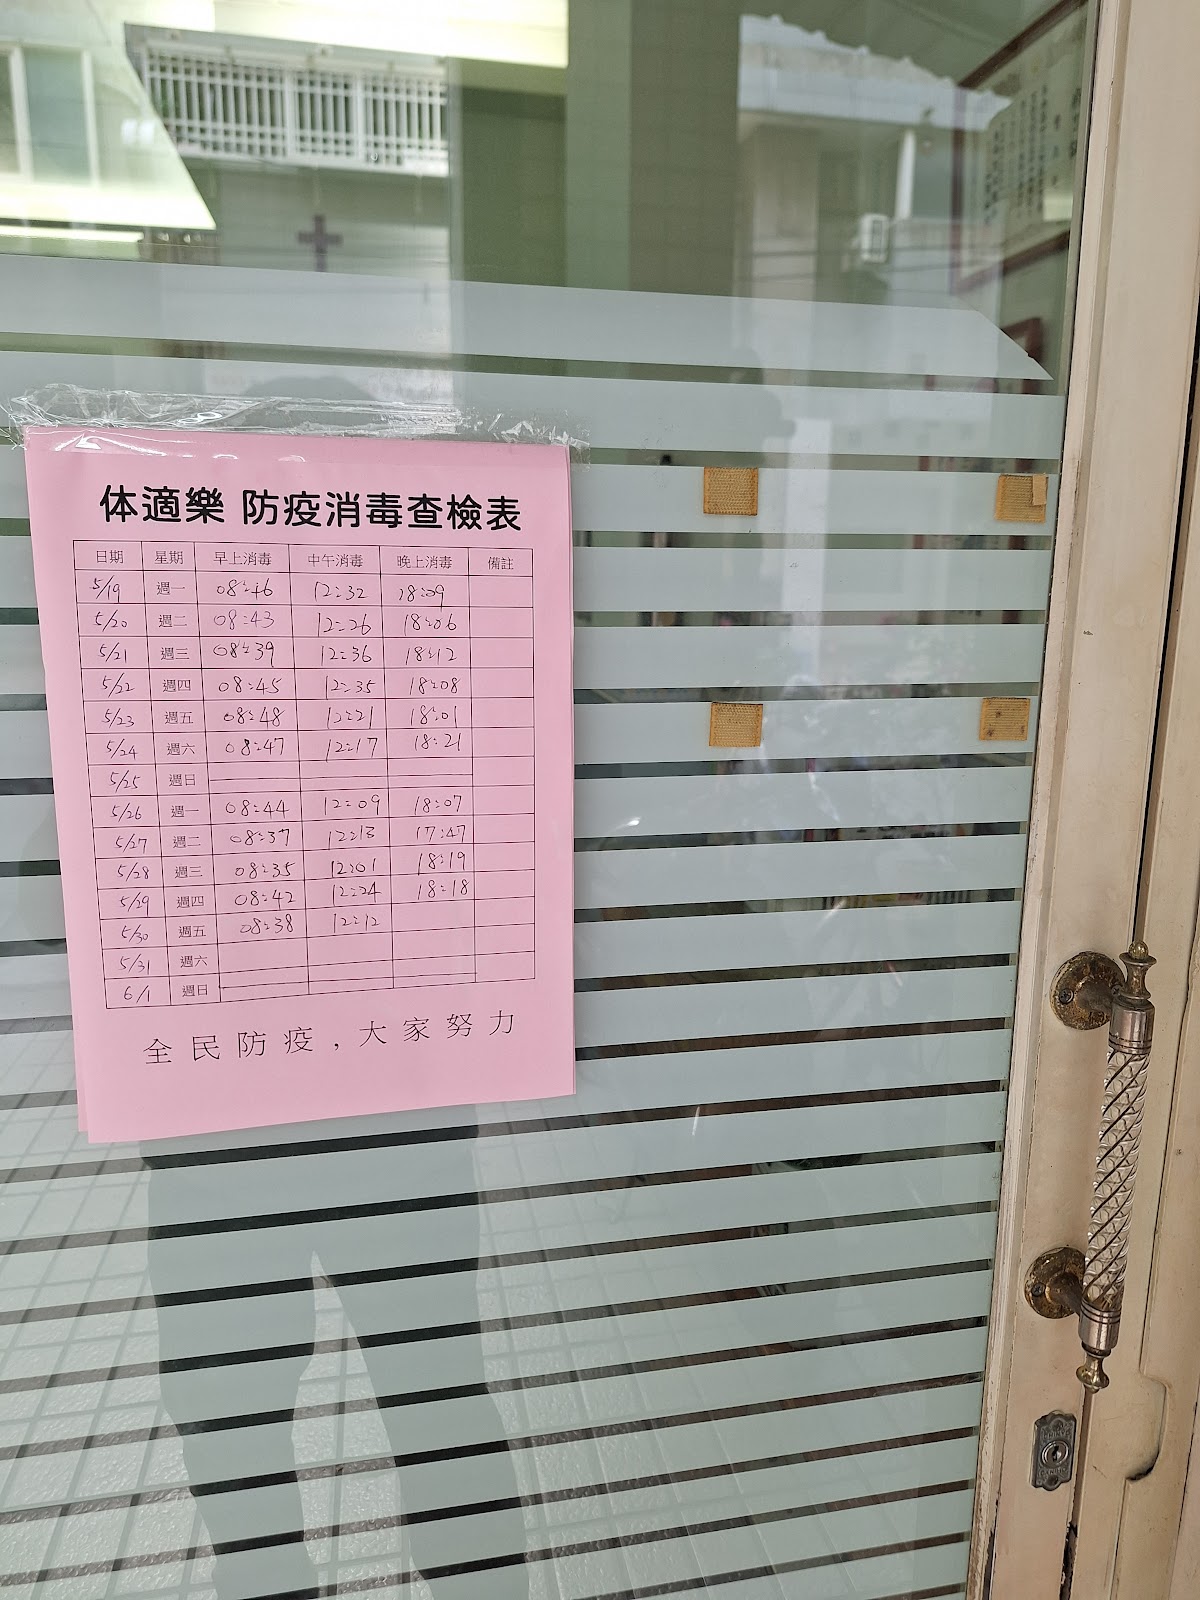 体適樂 防疫消毒查檢表
日期 星期 早上消毒 中午消毒 晚上消毒 備註
5/19 週一 08:46 12:32 18:09
5/20 週二 08:43 12:26 18:06
5/21 週三 08:39 12:36 18:12
5/22 週四 08:45 12:35 18:08
5/23 週五 08:48 12:21 18:01
5/24 週六 08:47 12:17 18:21
5/25 週日
5/26 週一 08:44 12:09 18:07
5/27 週二 08:37 12:13 17:47
5/28 週三 08:35 12:01 18:19
5/29 週四 08:42 12:24 18:18
5/30 週五 08:38 12:12
5/31 週六
6/1 週日
全民防疫，大家努力